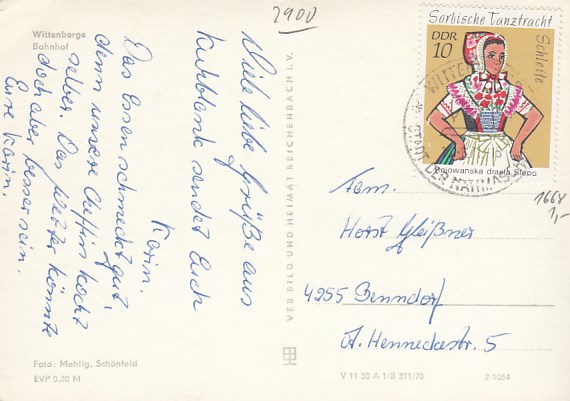 Wittenberge
Bahnhof
2900
Viele liebe Grüße aus
Kuhblank sendet Euch
Karin.
Das Essen schmeckt gut,
denn unsere Cheffin kocht
selber. Das Wetter könnte
doch aber besser sein.
Eure Karin.
Foto: Mehlig, Schönfeld
EVP 0,20 M
VEB BILD UND HEIMAT REICHENBACH i. V.
Sorbische Tanztracht
DDR
10
Schleife
Rejowanska drasta Slepo
WITTEN
STADT DER NÄHMAS
1668
1,-
Fam.
Horst Gleißner
4255 Benndorf
A. Henneckestr. 5
V 11 50 A 1/B 311/70
2/1064